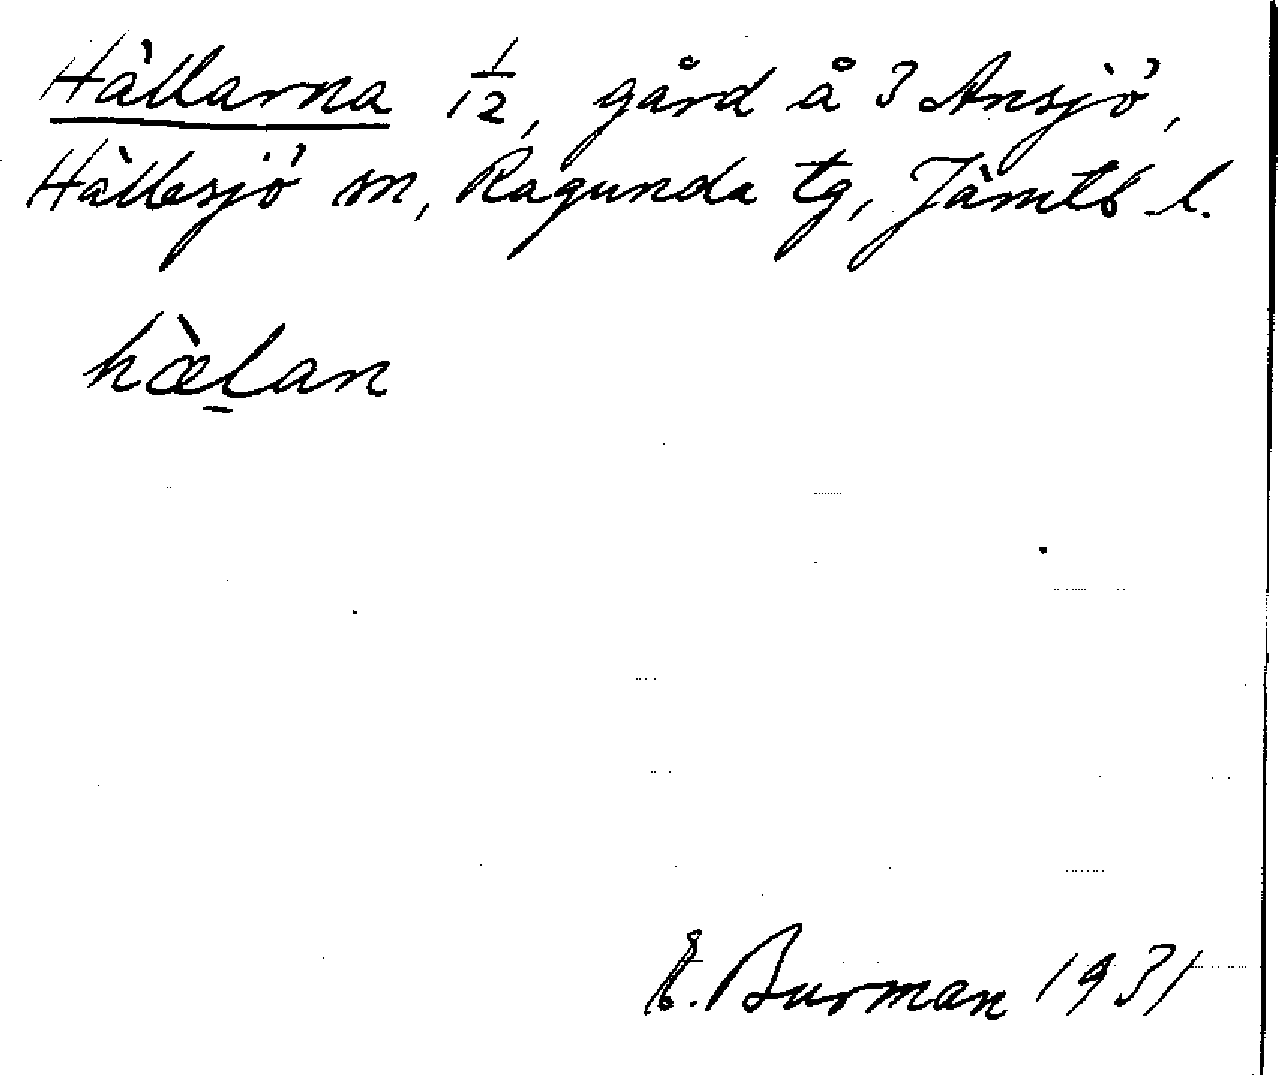 Hällarna 1/12, gård å 3 Ansjö,
Hällesjö sn, Ragunda tg, Jämtl l.
hæ̀lan
E. Burman 1931